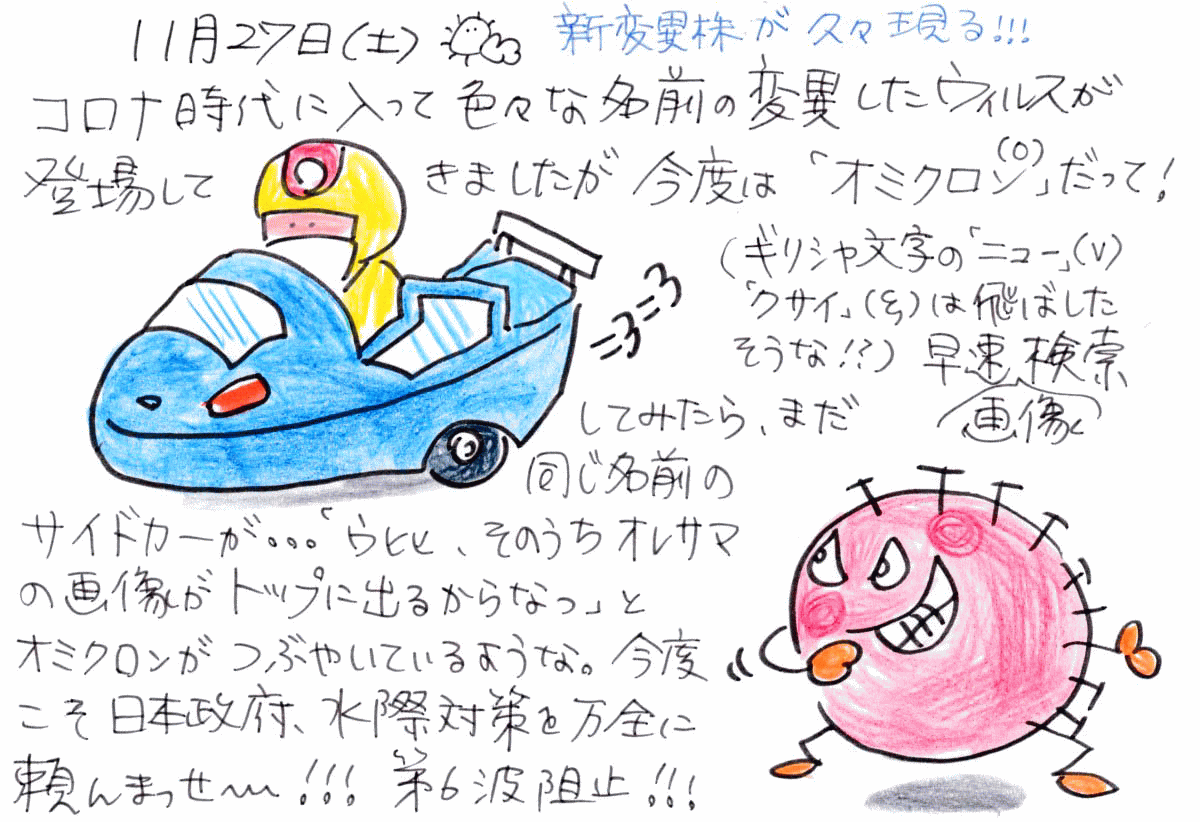 11月27日(土)
新変異株が久々現る!!!
コロナ時代に入って色々な名前の変異したウィルスが
登場してきましたが今度は「オミクロン」(O)だって!
(ギリシャ文字の「ニュー」(ν)
「クサイ」(ξ)は飛ばした
そうな!?)早速検索
画像
してみたら、まだ
同じ名前の
サイドカーが…「ウヒヒ、そのうちオレサマ
の画像がトップに出るからなっ」と
オミクロンがつぶやいているような。今度
こそ日本政府、水際対策を万全に
頼んまっせ〜!!!第6波阻止!!!